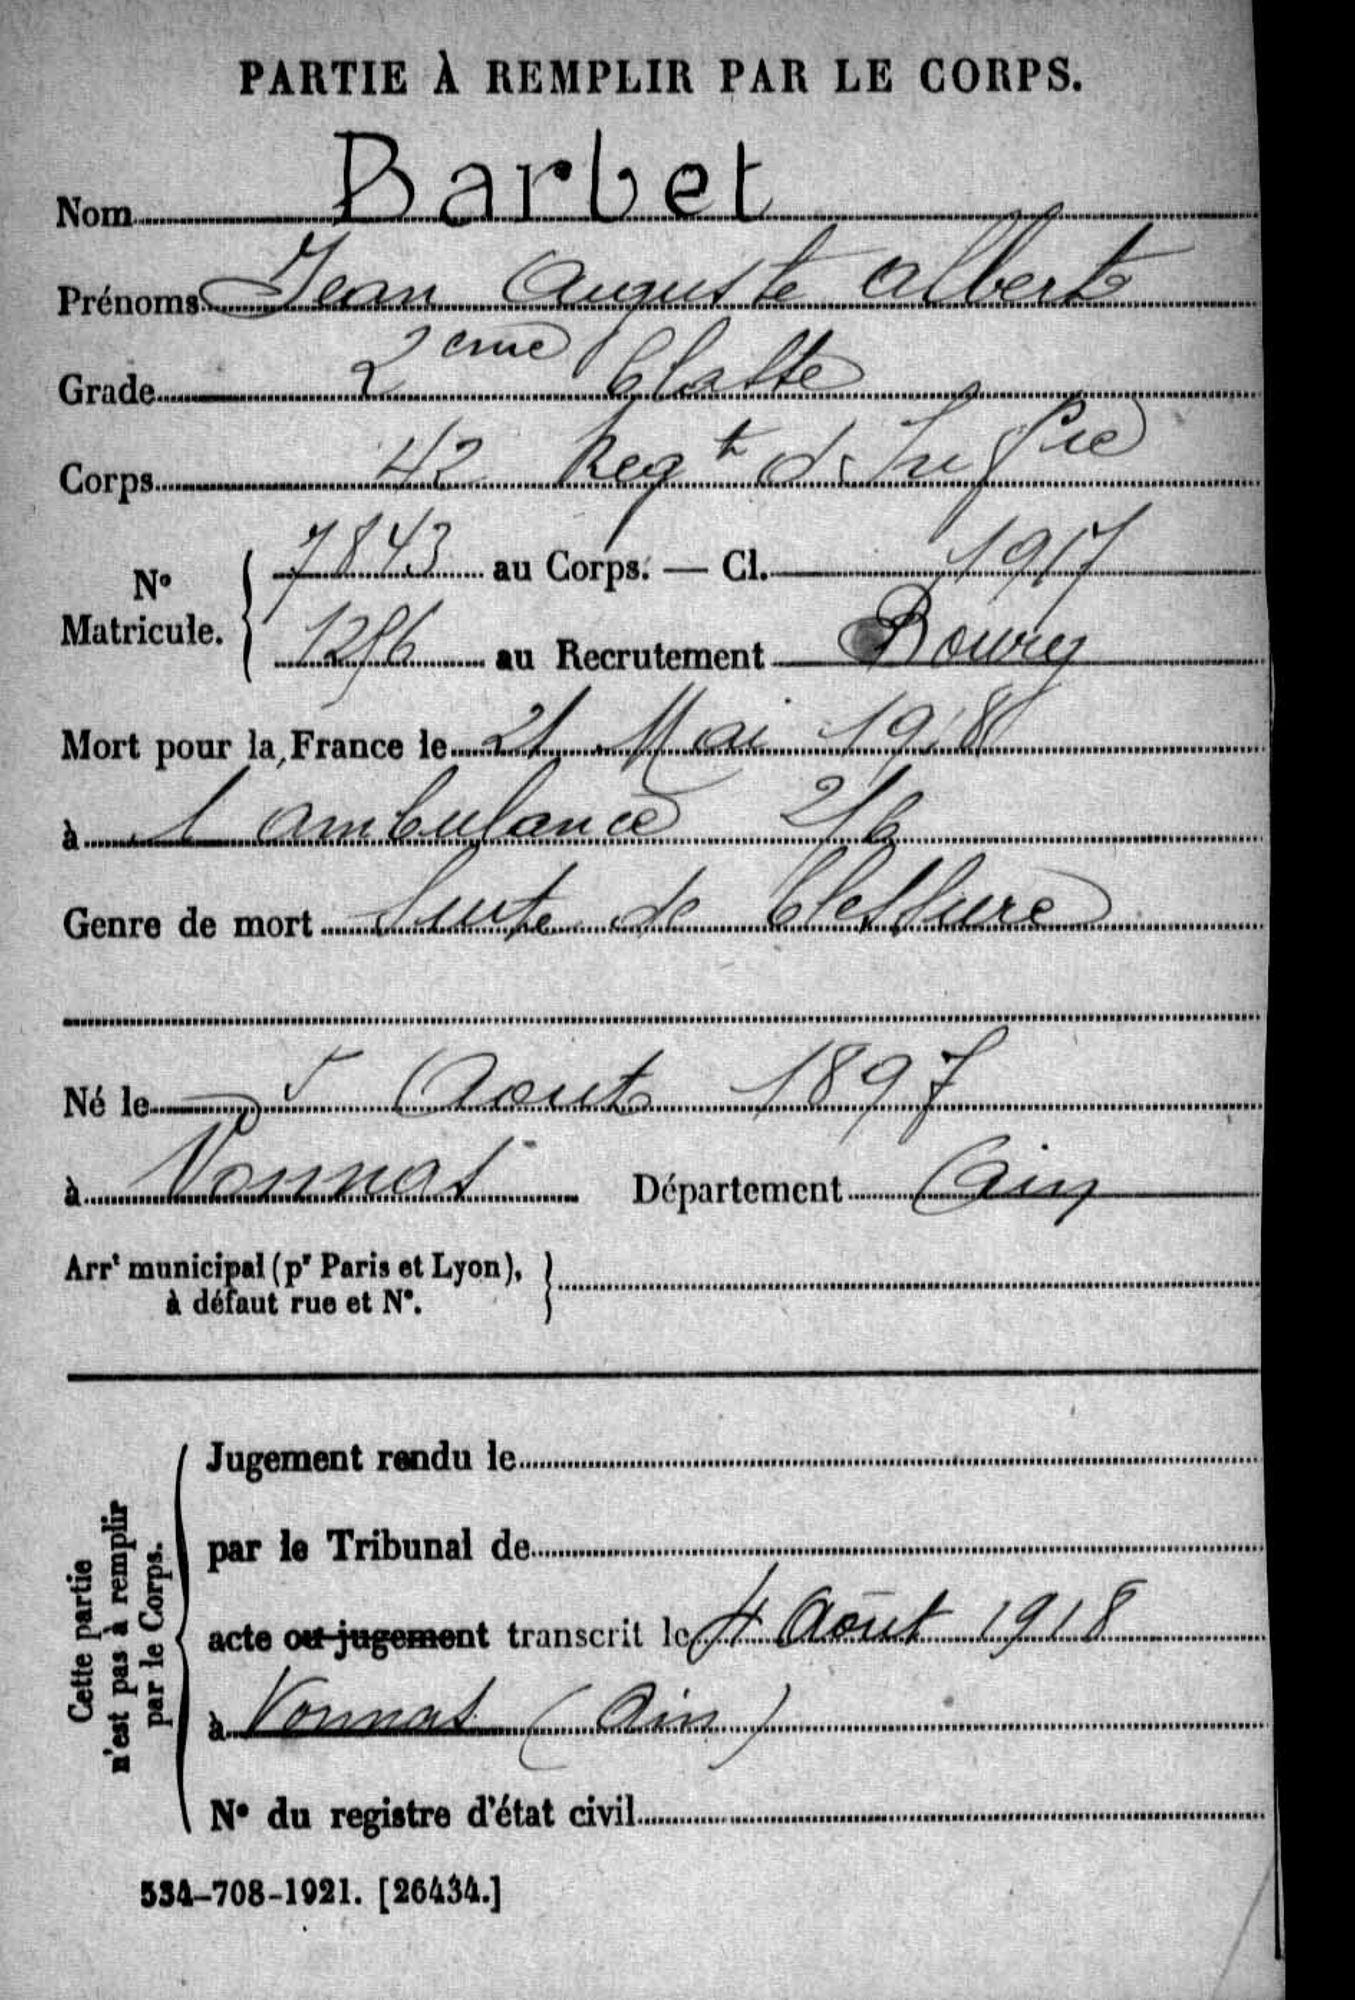 PARTIE À REMPLIR PAR LE CORPS.
Nom Barbet
Prénoms Jean Auguste Albert
Grade 2eme Classe
Corps 42 Regt d'Infrie
No Matricule. { 7843 au Corps. — Cl. 1917
1286 au Recrutement Bourg
Mort pour la France le 21 Mai 1918
à l ambulance 216
Genre de mort Suite de blessure
Né le 5 Aout 1897
à Vonnas Département Ain
Arrt municipal (pr Paris et Lyon), }
à défaut rue et N°.
Cette partie
n'est pas à remplir
par le Corps.
Jugement rendu le
par le Tribunal de
acte ou jugement transcrit le 4 Août 1918
à Vonnas (Ain)
N° du registre d'état civil
534-708-1921. [26434.]